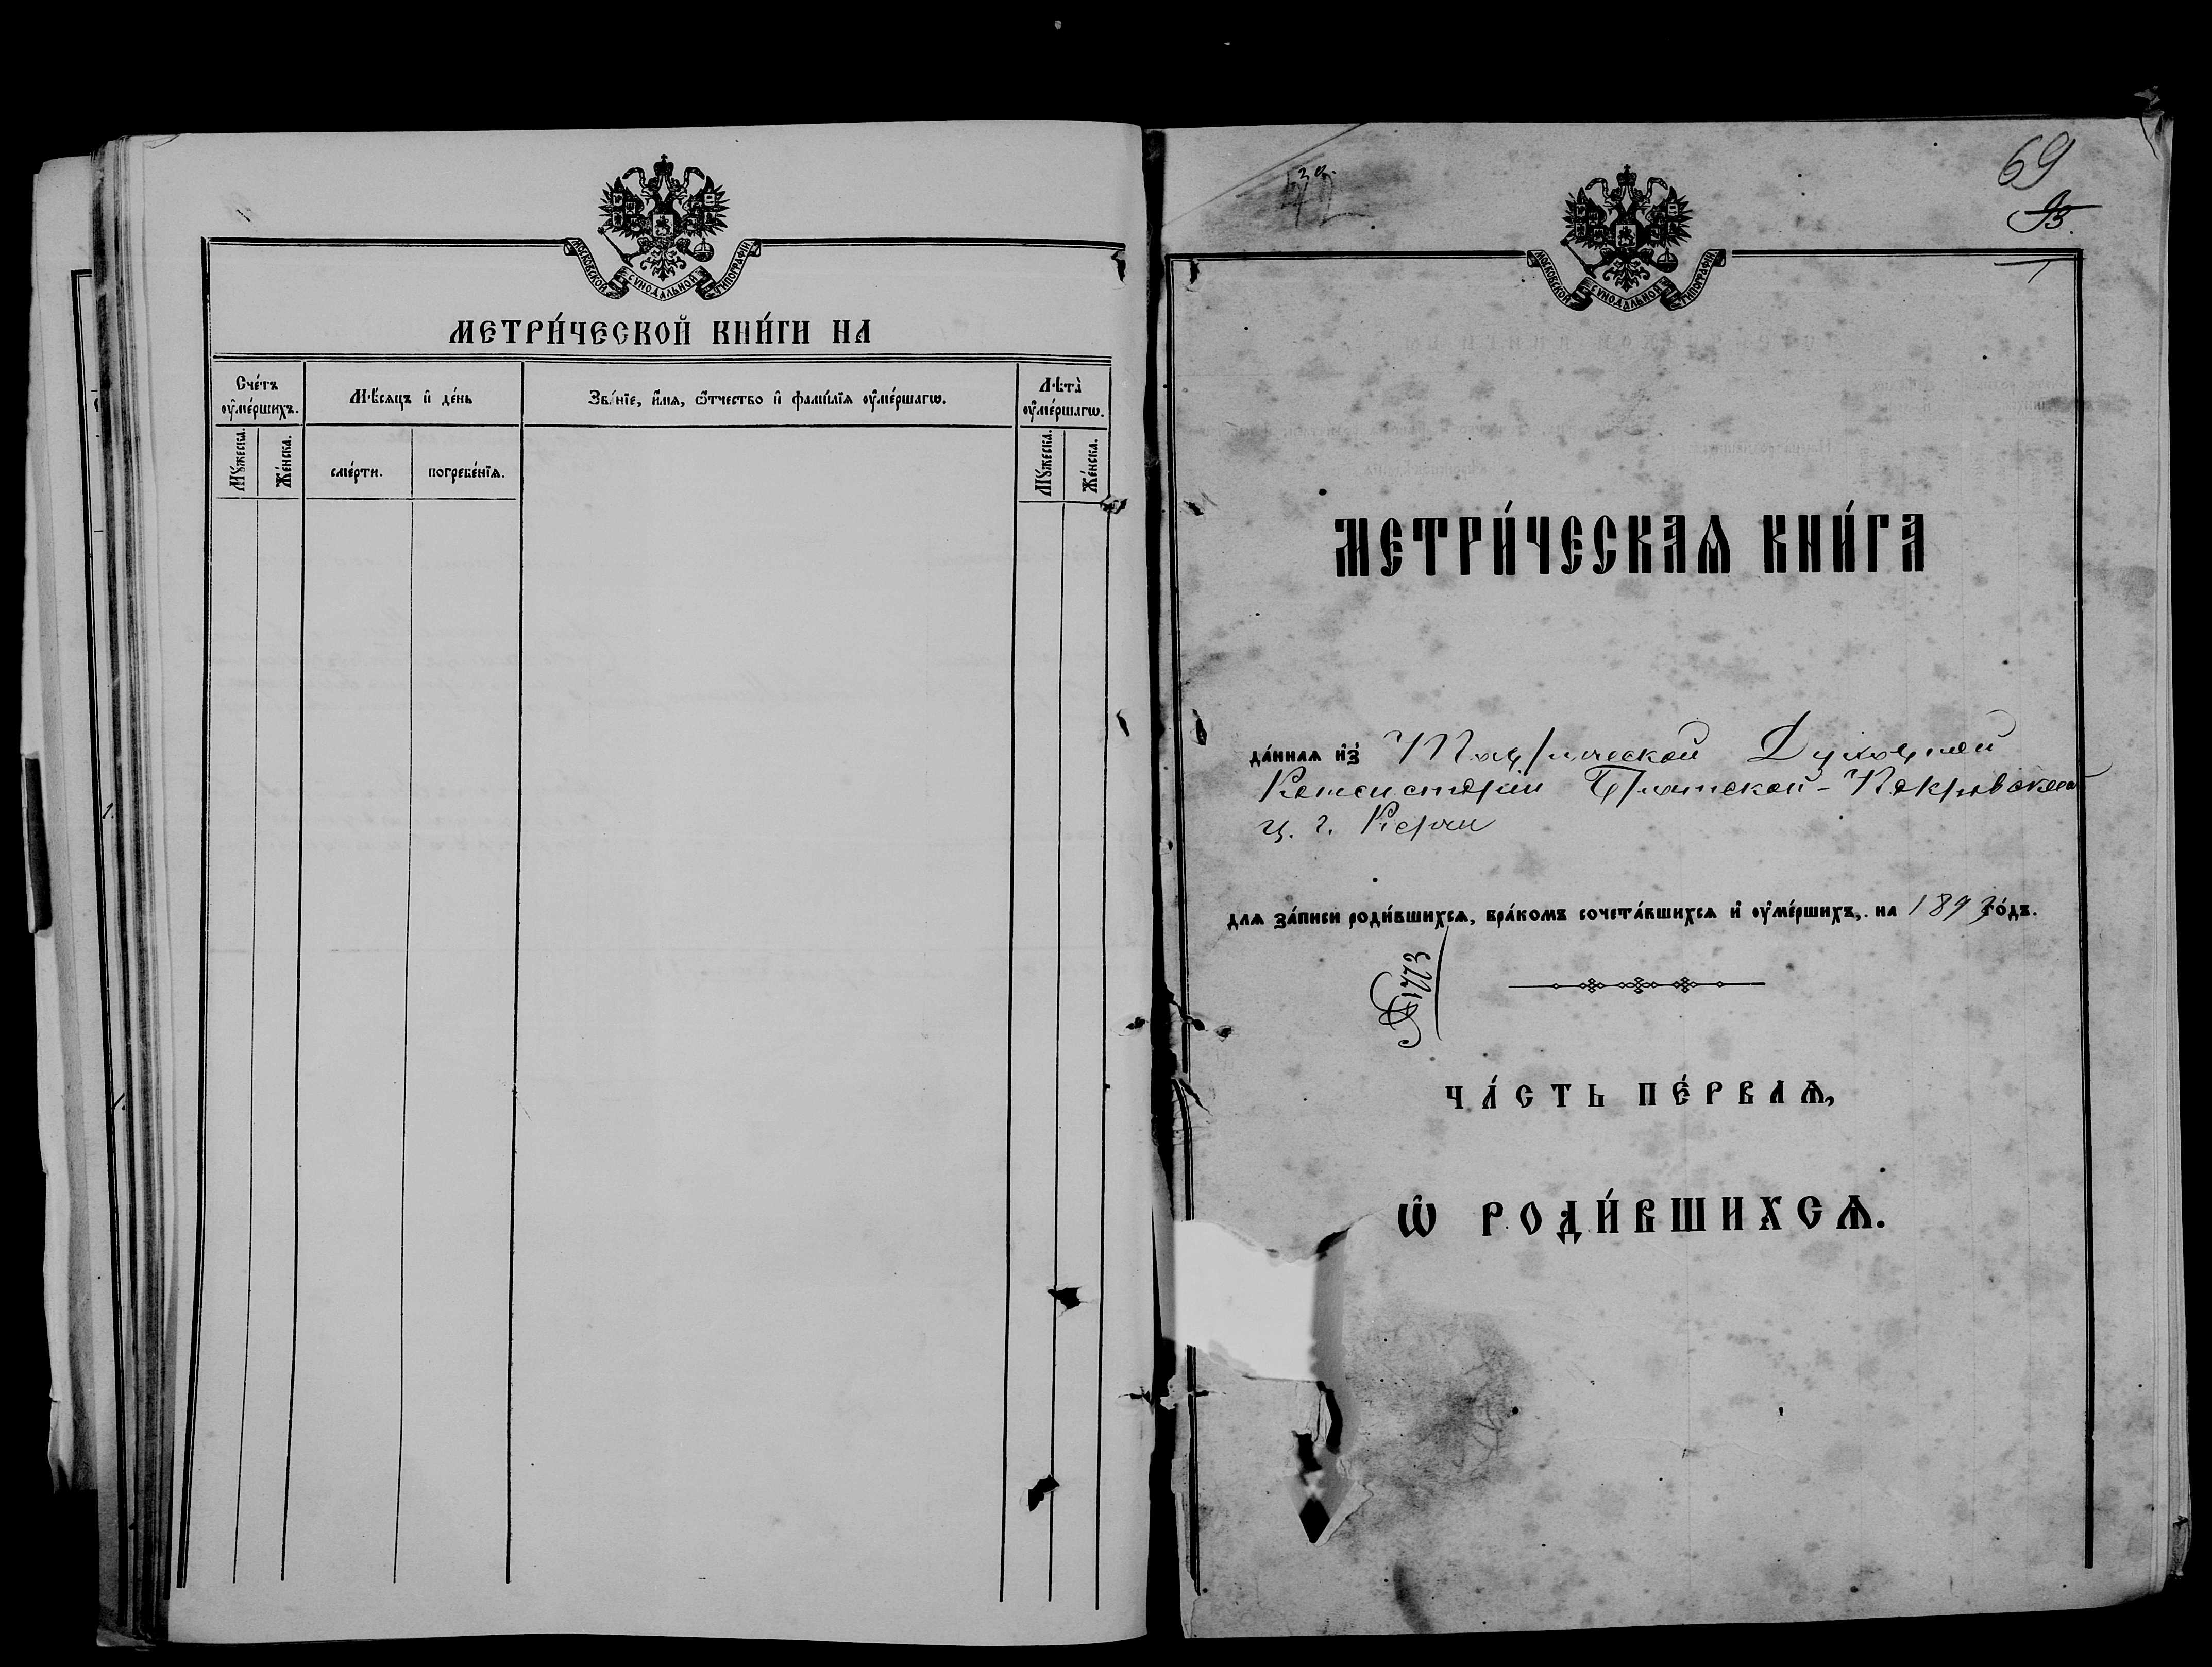 МОСКОВСКОЙ СѴНОДАЛЬНОЙ ТИПОГРАФІИ
МЕТРИ́ЧЕСКОЙ КНИ́ГИ НА
Сче́тъ ᲂу҆ме́ршихъ.
Мѣ́сяцъ и҆ де́нь
Зва́нїе, и҆́мѧ, ѻ҆́тчество и҆ фами́лїѧ ᲂу҆ме́ршагѡ.
Лѣ́та ᲂу҆ме́ршагѡ.
Мꙋ́жеска.
Же́нска.
сме́рти.
погребе́нїѧ.
Мꙋ́жеска.
Же́нска.
69
МОСКОВСКОЙ СѴНОДАЛЬНОЙ ТИПОГРАФІИ
МЕТРИ́ЧЕСКАѦ КНИ́ГА
да́ннаѧ и҆з̾ Таврической Духовной
Консисторіи Братской-Покровской
ц. г. Керчи
длѧ за́писи роди́вшихсѧ, бра́комъ сочета́вшихсѧ и҆ ᲂу҆ме́ршихъ, на 1893 го́дъ.
1773
ЧА́СТЬ ПЕ́РВАѦ,
Ѡ҆ РОДИ́ВШИХСѦ.